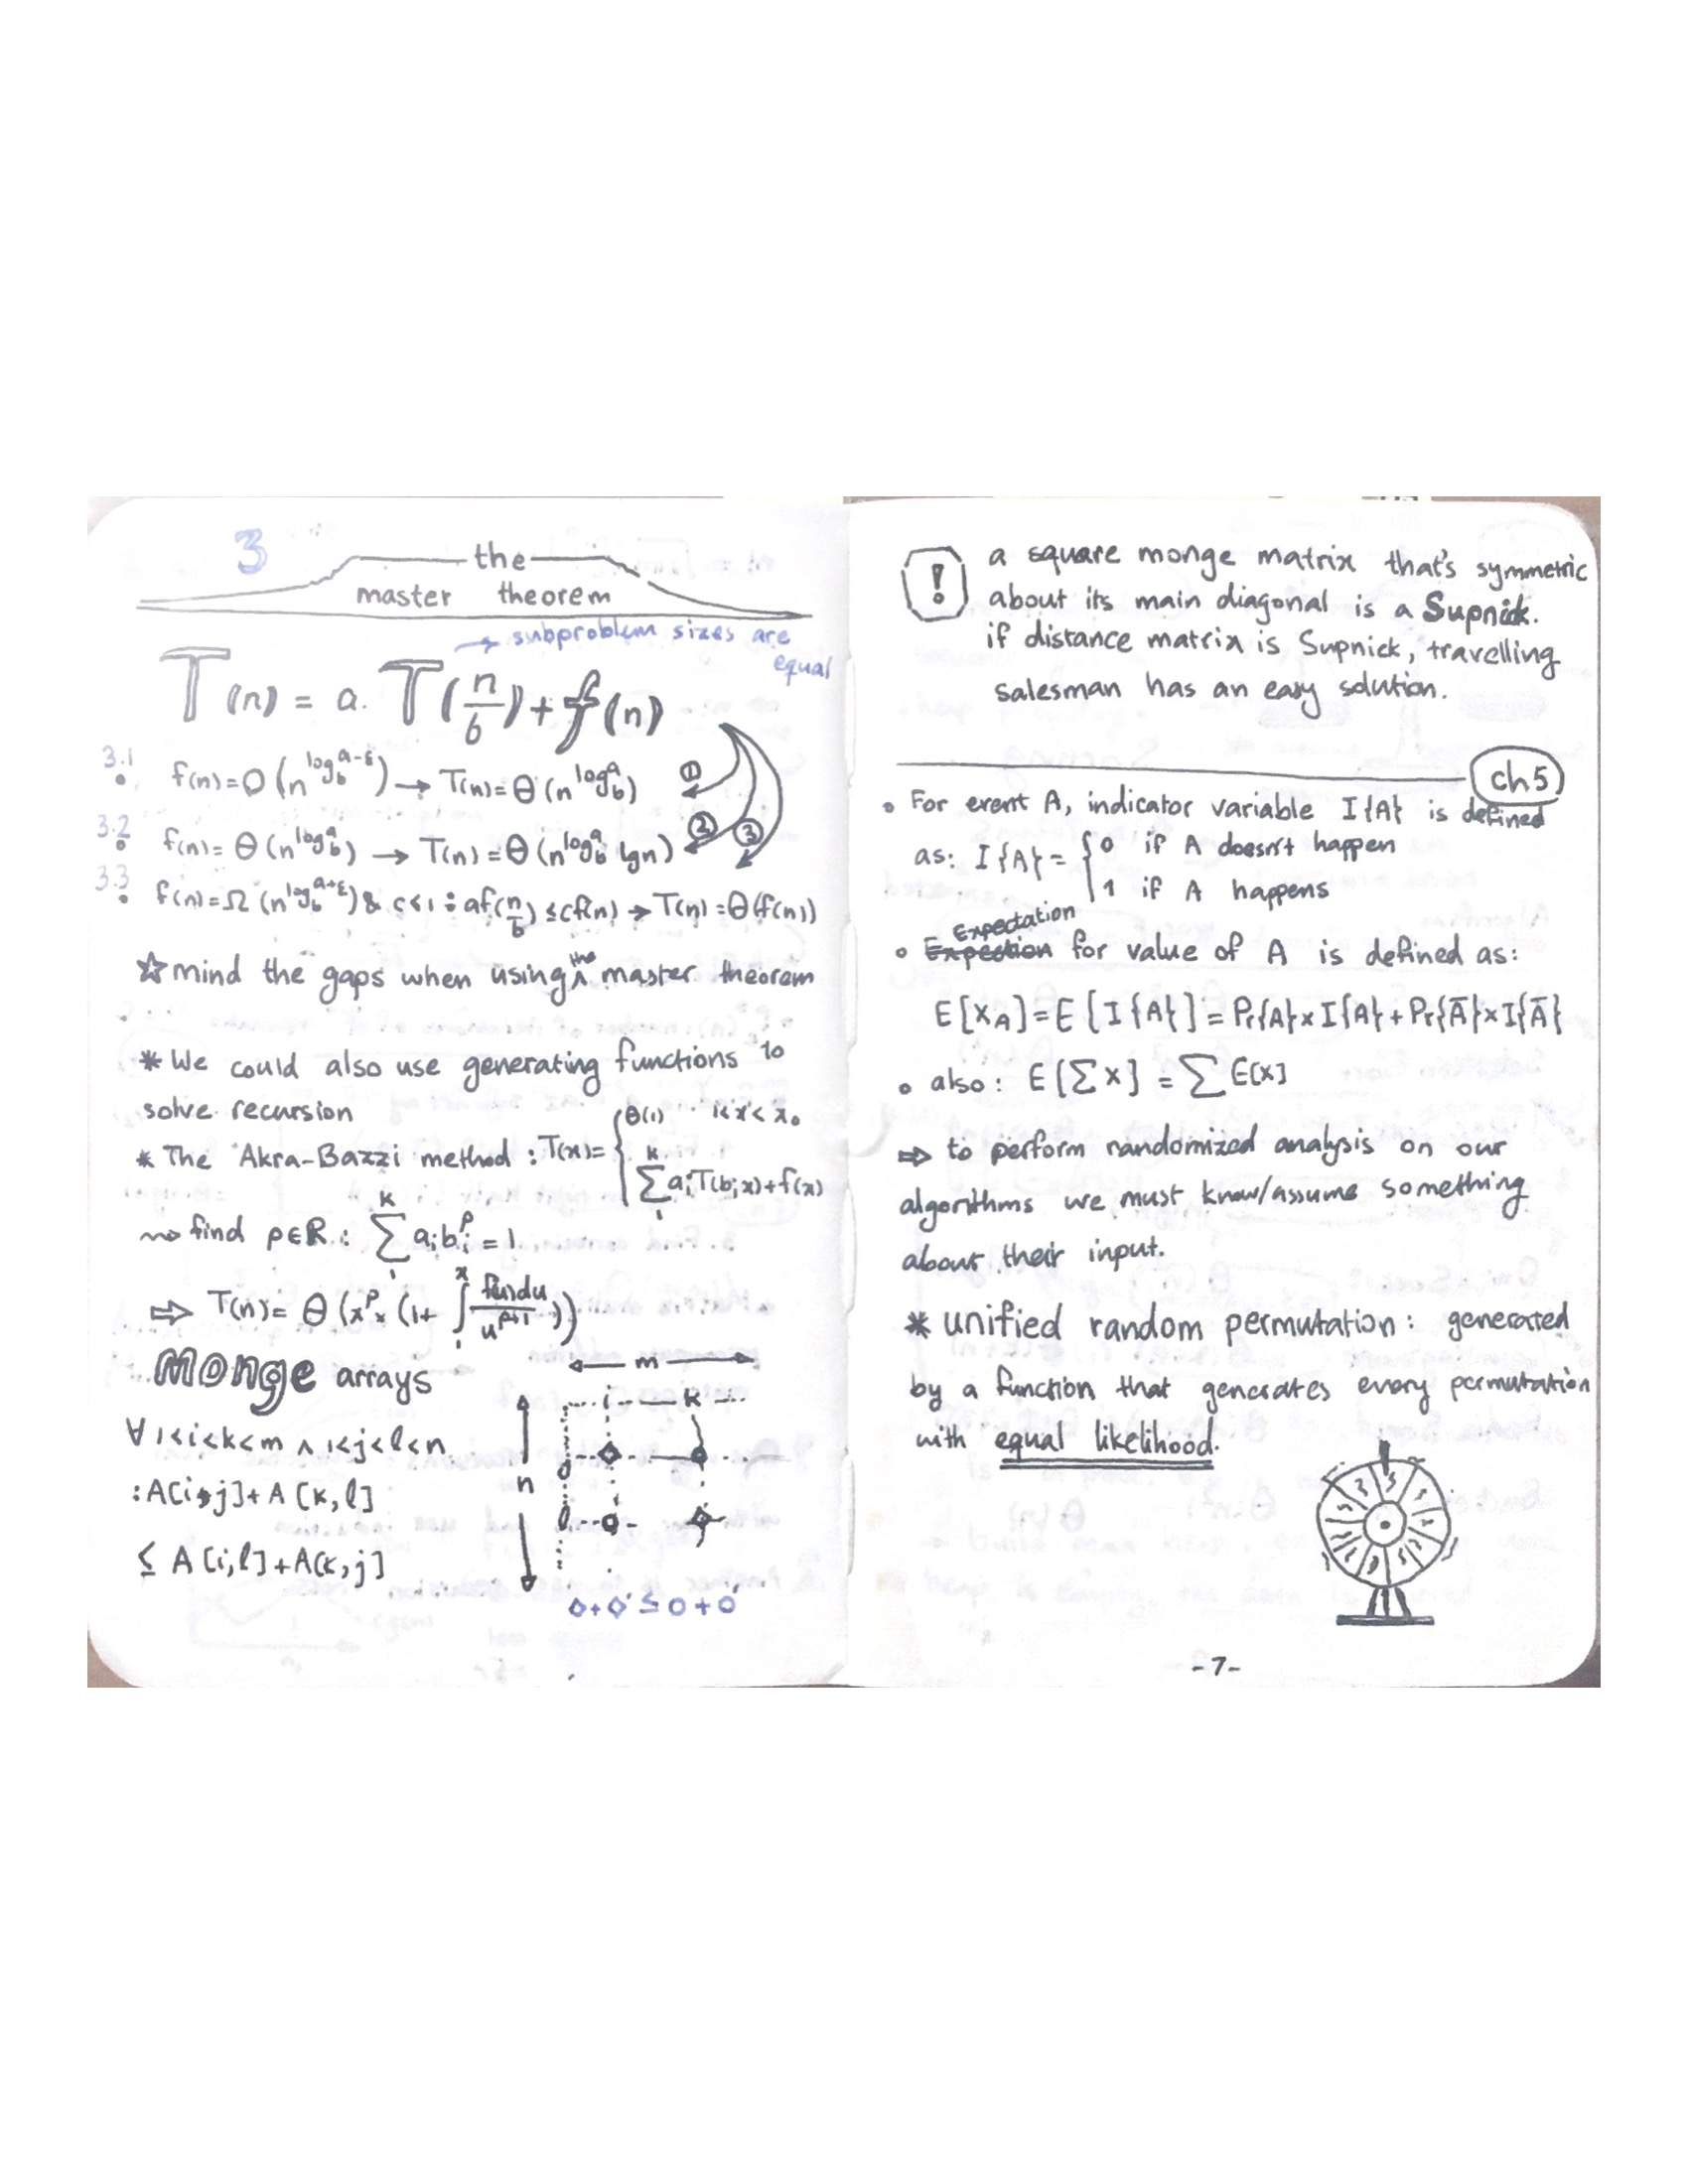 3
the
master theorem
→ subproblem sizes are
equal
T(n) = a. T(n/b) + f(n)
3.1
• f(n)=O(n^log_b^a-ε) → T(n)=Θ(n^log_b^a) ①
3.2
• f(n)=Θ(n^log_b^a) → T(n)=Θ(n^log_b^a lgn) ② ③
3.3
• f(n)=Ω(n^log_b^a+ε) & c<1 : af(n/b) ≤ cf(n) → T(n)=Θ(f(n))
☆ mind the gaps when using the master theorem
* We could also use generating functions to
solve recursion
* The Akra-Bazzi method : T(x)= { Θ(1) 1<x<x₀
∑_i^k a_i T(b_i x)+f(x)
⇝ find p∈R : ∑_i^k a_i b_i^p = 1
⇒ T(n)= Θ(x^p × (1+ ∫_1^x f(u)du / u^p+1))
Monge arrays
∀ 1<i<k<m ∧ 1<j<l<n
: A[i,j]+A[k,l]
≤ A[i,l]+A[k,j]
← m →
i k
n
j
l
◇+◇' ≤ o+o'
! a square monge matrix that's symmetric
about its main diagonal is a Supnick.
if distance matrix is Supnick, travelling
salesman has an easy solution.
ch5
• For event A, indicator variable I{A} is defined
as: I{A} = { 0 if A doesn't happen
1 if A happens
Expectation
• Expection for value of A is defined as:
E[X_A]=E[I{A}]=Pr{A}×I{A}+Pr{Ā}×I{Ā}
• also: E[∑x] = ∑E[x]
⇒ to perform randomized analysis on our
algorithms we must know/assume something
about their input.
* unified random permutation: generated
by a function that generates every permutation
with equal likelihood.
-7-